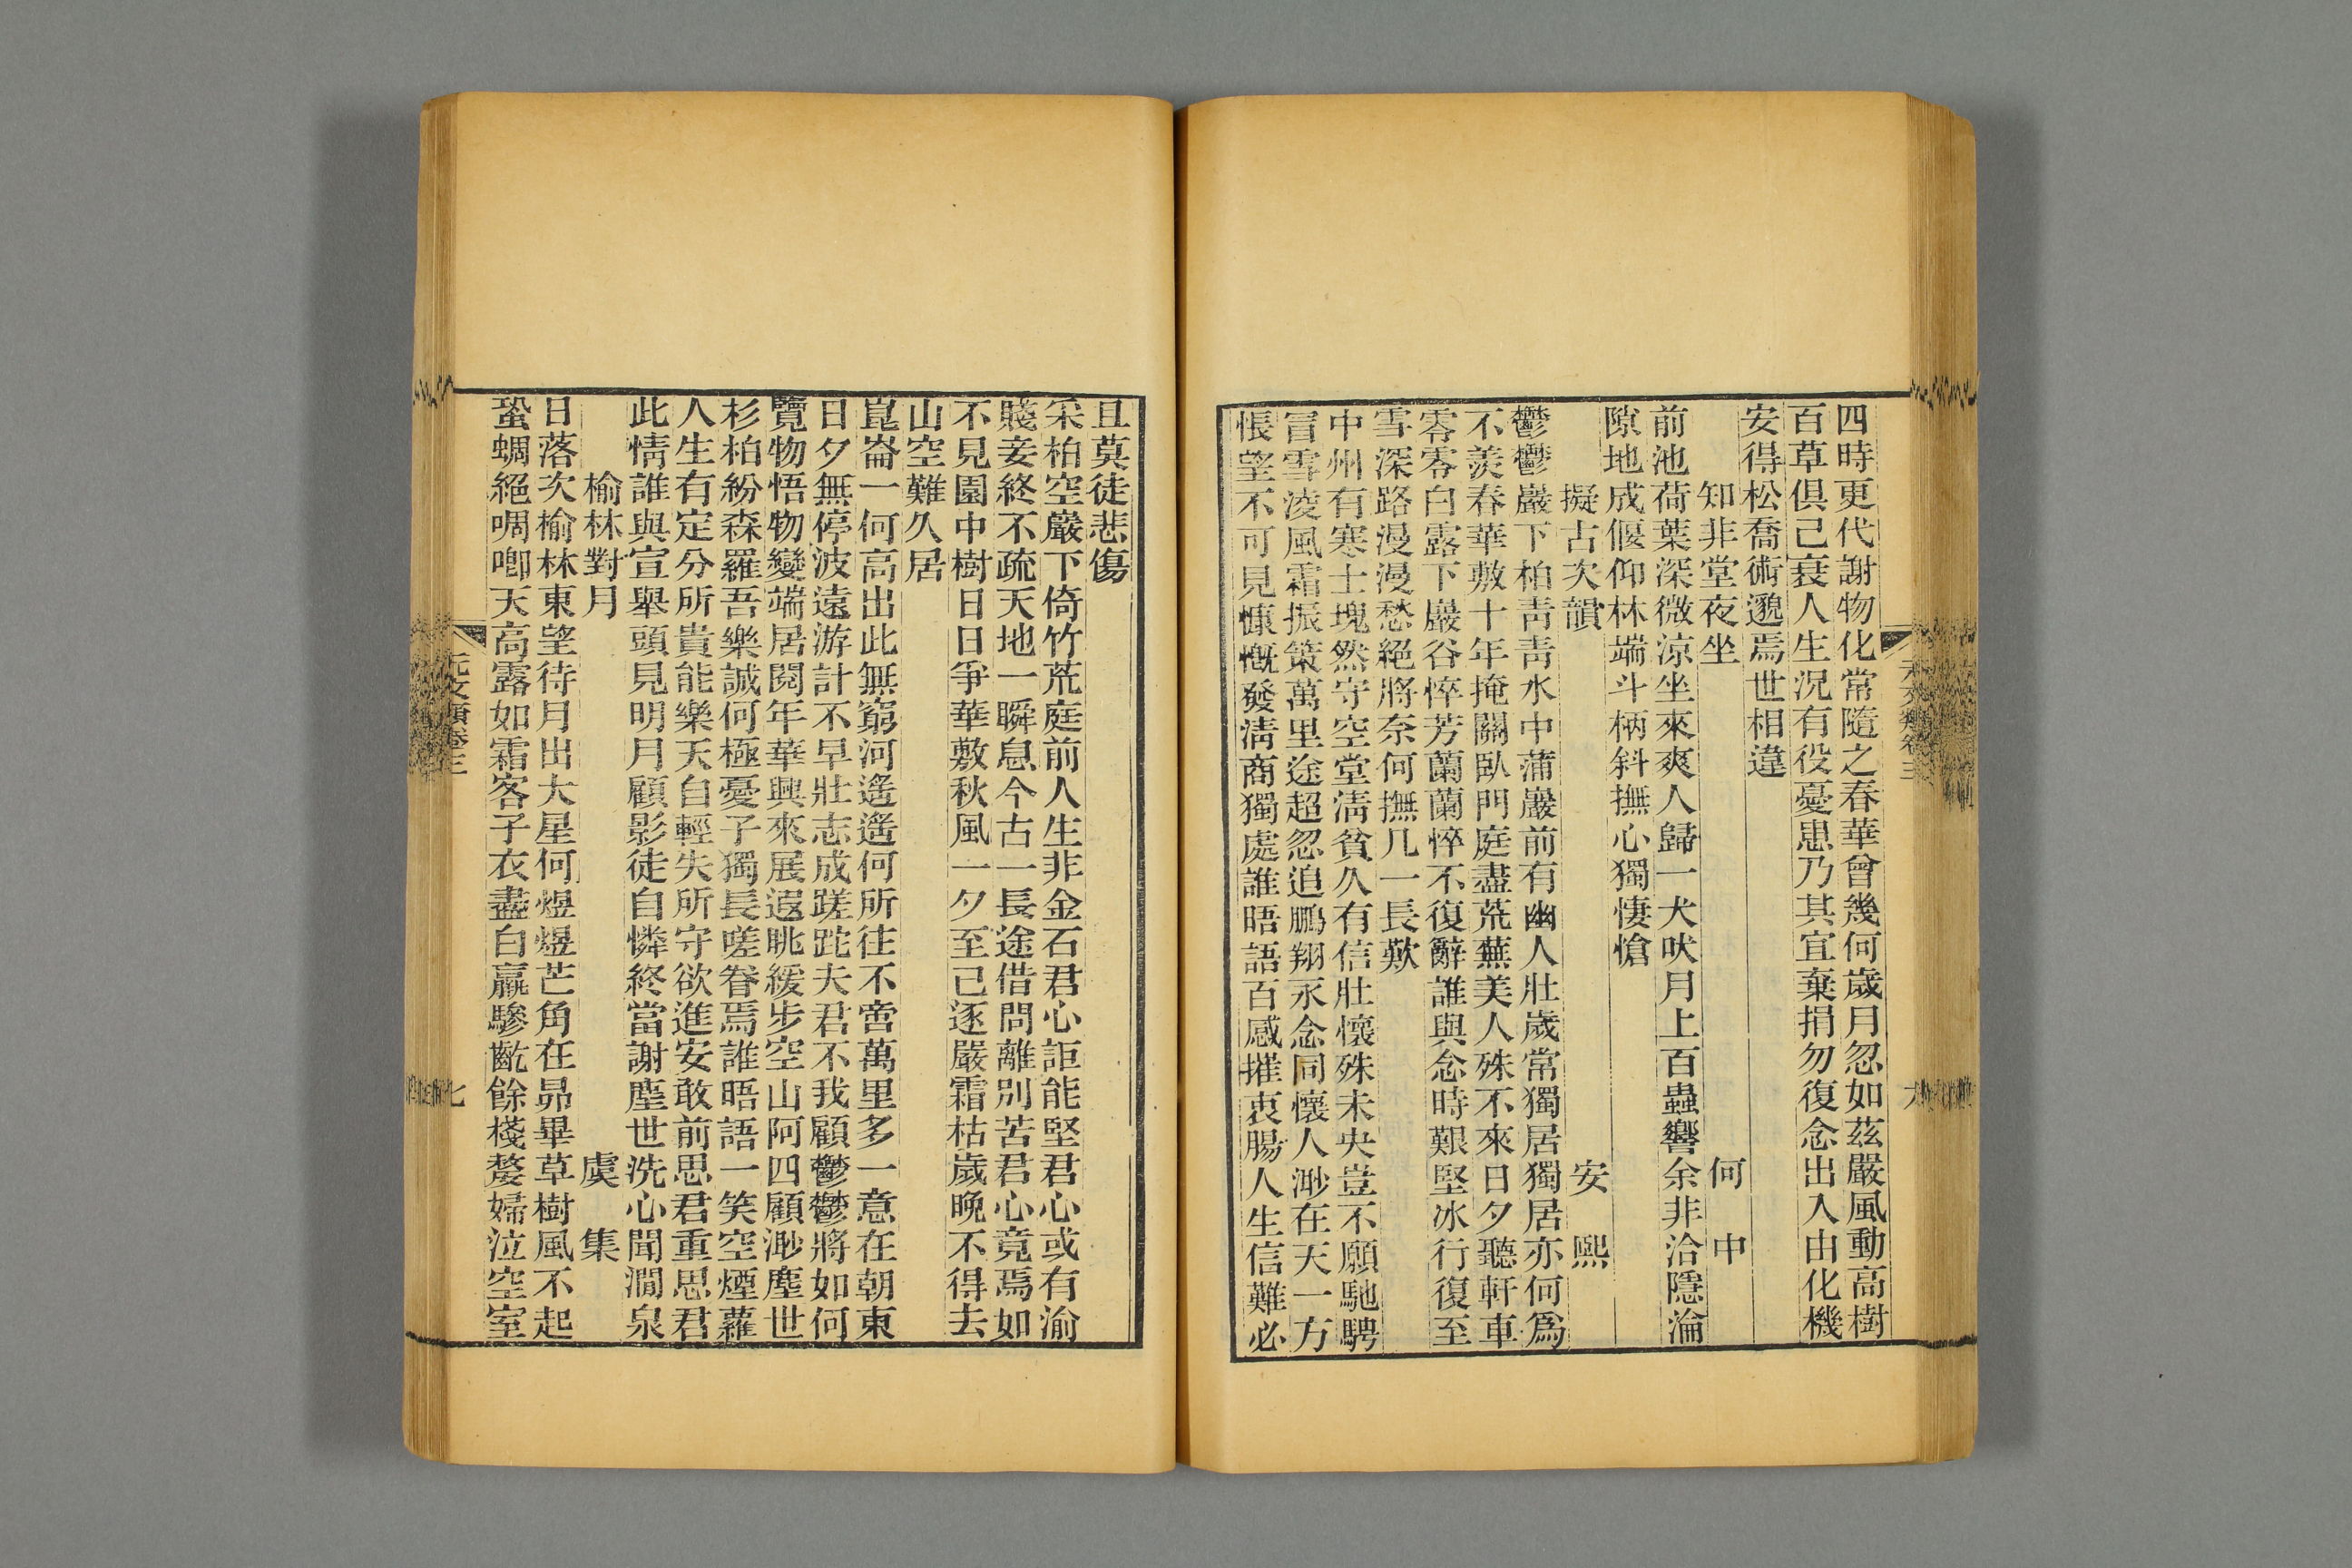 四時更代謝物化常隨之春華曾幾何歲月忽如茲嚴風動高樹
百草俱已衰人生況有役憂患乃其宜棄捐勿復念出入由化機
安得松喬術邈焉世相違
知非堂夜坐 何中
前池荷葉深微涼坐來爽人歸一犬吠月上百蟲響余非洽隱淪
隙地成偃仰林端斗柄斜撫心獨悽愴
擬古次韻 安熙
鬱鬱巖下柏靑靑水中蒲巖前有幽人壯歲常獨居獨居亦何爲
不羨春華敷十年掩關臥門庭盡荒蕪美人殊不來日夕聽軒車
零零白露下巖谷悴芳蘭蘭悴不復辭誰與念時艱堅冰行復至
雪深路漫漫愁絕將奈何撫几一長歎
中州有寒士塊然守空堂淸貧久有信壯懷殊未央豈不願馳騁
冒雪淩風霜振策萬里途超忽追鵬翔永念同懷人渺在天一方
悵望不可見慷慨發淸商獨處誰晤語百感摧衷腸人生信難必
且莫徒悲傷
采柏空巖下倚竹荒庭前人生非金石君心詎能堅君心或有渝
賤妾終不疏天地一瞬息今古一長途借問離別苦君心竟焉如
不見園中樹日日爭華敷秋風一夕至已逐嚴霜枯歲晚不得去
山空難久居
崑崙一何高出此無窮河遙遙何所往不啻萬里多一意在朝東
日夕無停波遠游計不早壯志成蹉跎夫君不我顧鬱鬱將如何
覽物悟物變端居閱年華興來展遐眺緩步空山阿四顧渺塵世
杉柏紛森羅吾樂誠何極憂子獨長嗟眷焉誰晤語一笑空煙蘿
人生有定分所貴能樂天自輕失所守欲進安敢前思君重思君
此情誰與宣舉頭見明月顧影徒自憐終當謝塵世洗心聞澗泉
榆林對月 虞集
日落次榆林東望待月出大星何煜煜芒角在昴畢草樹風不起
蛩蜩絕啁喞天高露如霜客子衣盡白羸驂齕餘棧嫠婦泣空室
元文類卷三
七